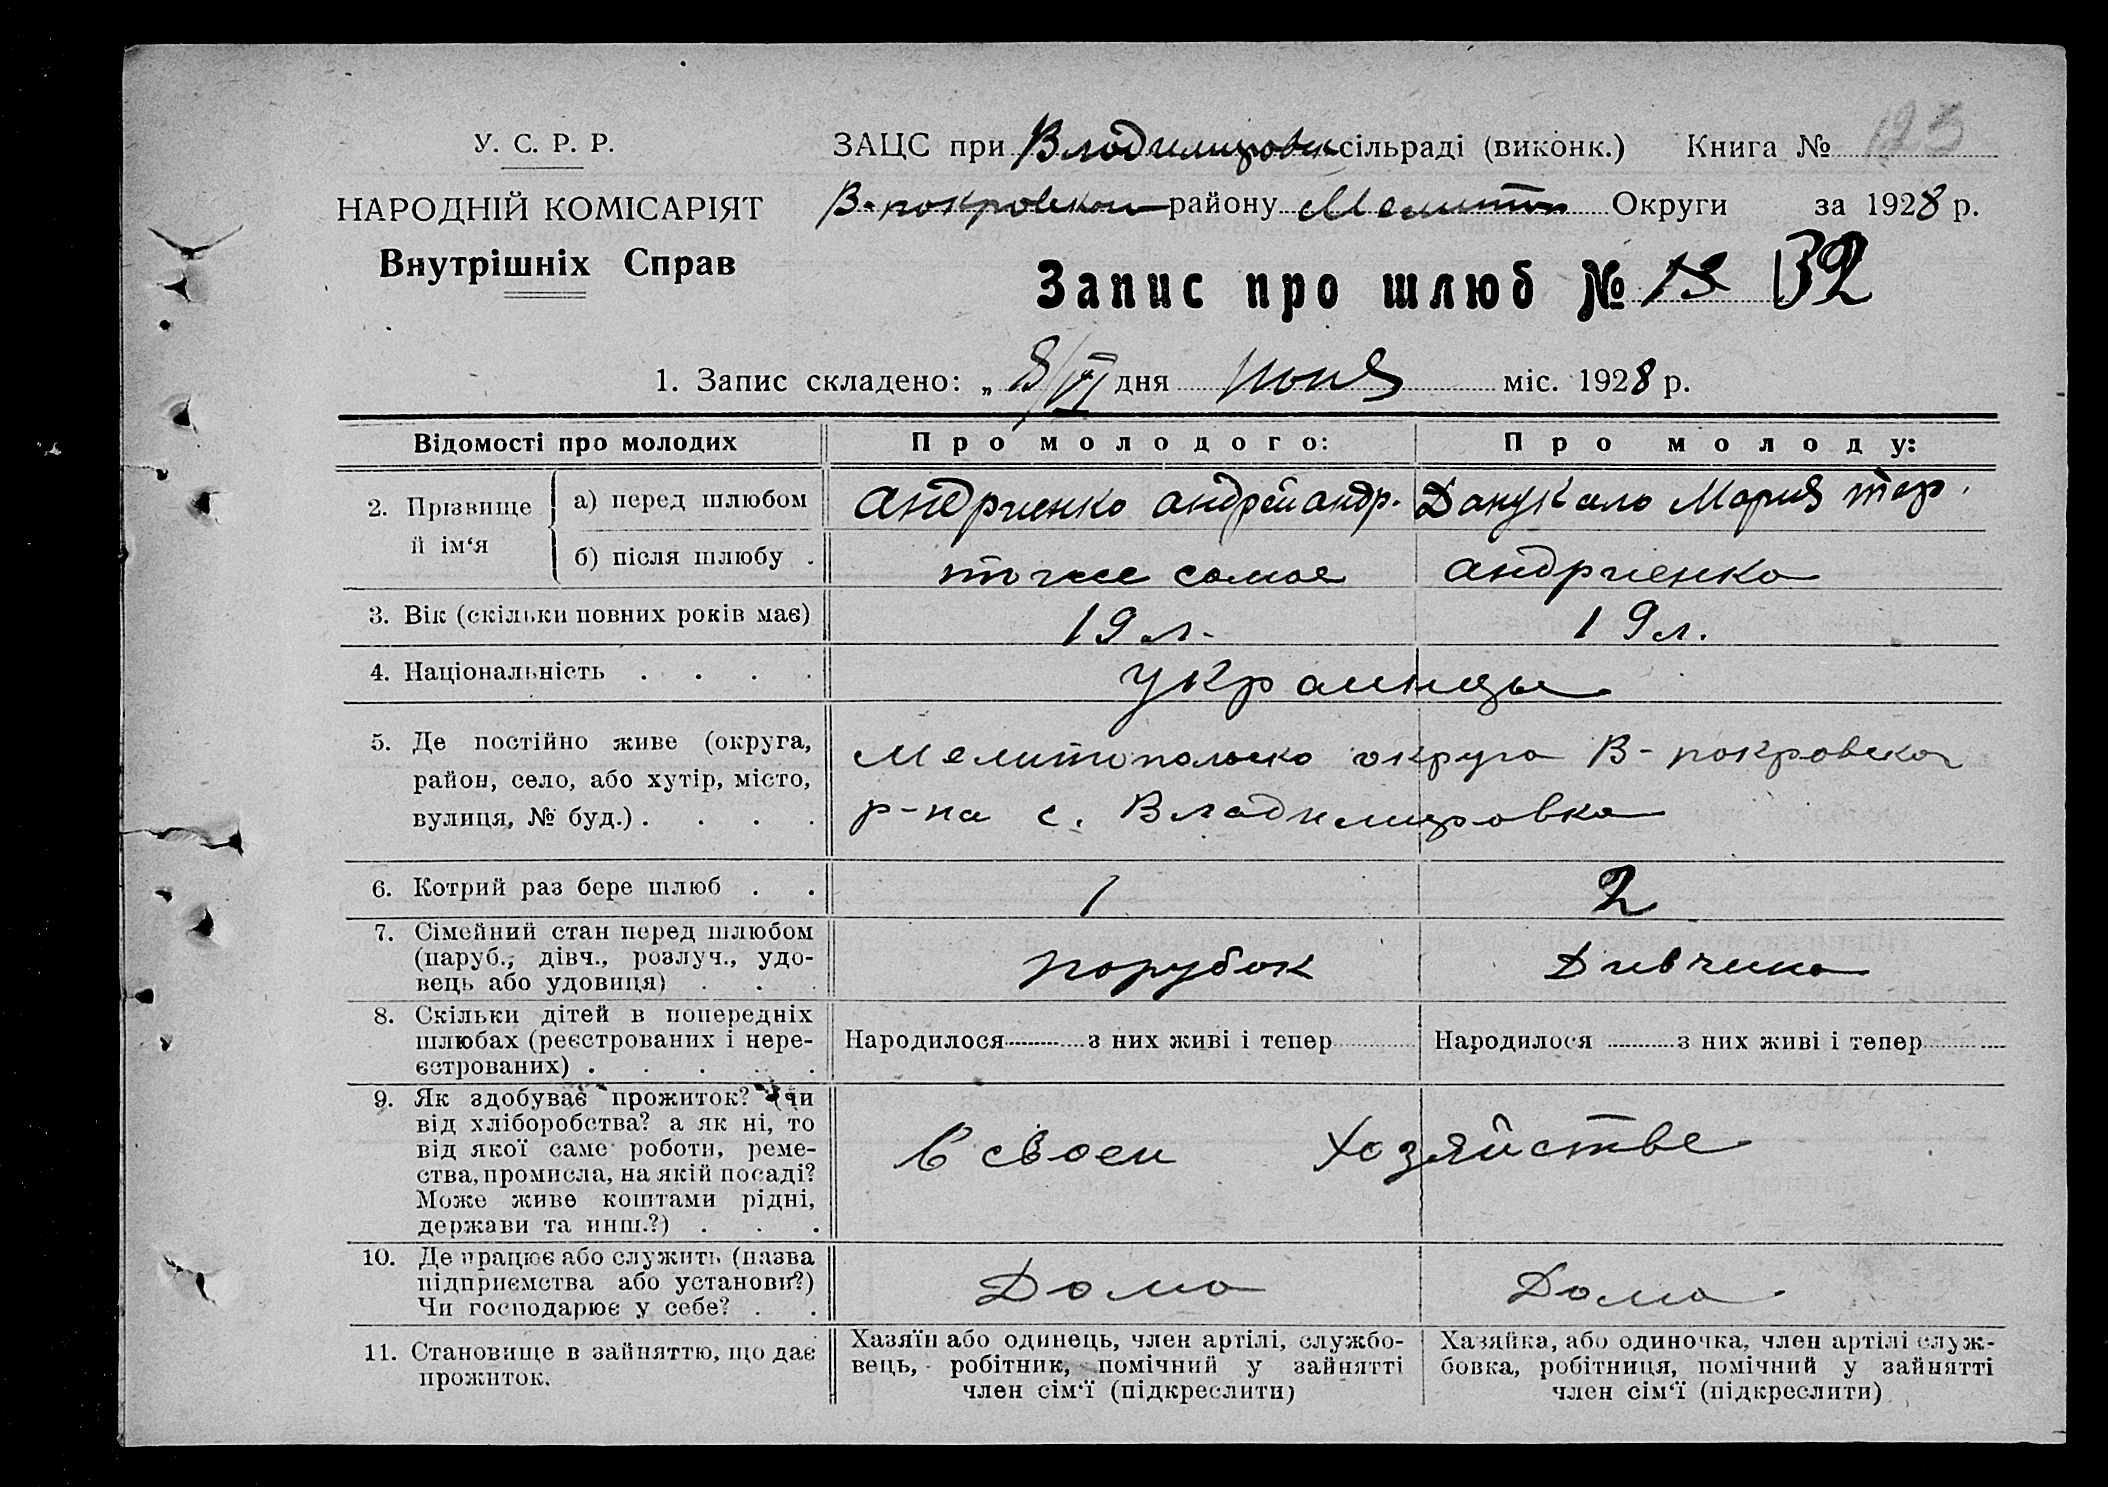 У. С. Р. Р.
НАРОДНІЙ КОМІСАРІЯТ
Внутрішніх Справ
ЗАЦС при Владимировк сільраді (виконк.) Книга № 123
В-покровском району Мелитоп Округи за 1928 р.
Запис про шлюб № 13 132
1. Запис складено: „ /VI дня июня міс. 1928 р.
Відомості про молодих Про молодого: Про молоду:
2. Прізвище й ім‘я
а) перед шлюбом Андриенко Андрей Андр. Данукало Мария
б) після шлюбу . тоже самое Андриенко
3. Вік (скільки повних років має) 19 л. 19 л.
4. Національність . . . . украинцы
5. Де постійно живе (округа, Мелитопольско округа В-покровско
район, село, або хутір, місто, р-на с. Владимировка
вулиця, № буд.) . . . .
6. Котрий раз бере шлюб . . 1 2
7. Сімейний стан перед шлюбом
(паруб., дівч., розлуч., удо- порубок Дивчина
вець або удовиця) . . .
8. Скільки дітей в попередніх
шлюбах (реєстрованих і нере- Народилося з них живі і тепер Народилося з них живі і тепер
єстрованих) . . . . .
9. Як здобуває прожиток? (чи
від хліборобства? а як ні, то
від якої саме роботи, реме- в своем хозяйстве
ства, промисла, на якій посаді?
Може живе коштами рідні,
держави та инш.?) . . .
10. Де працює або служить (назва
підприємства або установи?) Дома Дома
Чи господарює у себе? . .
11. Становище в зайняттю, що дає
прожиток.
Хазяїн або одинець, член артілі, службо-
вець, робітник, помічний у зайнятті
член сім‘ї (підкреслити)
Хазяйка, або одиночка, член артілі служ-
бовка, робітниця, помічний у зайнятті
член сім‘ї (підкреслити)